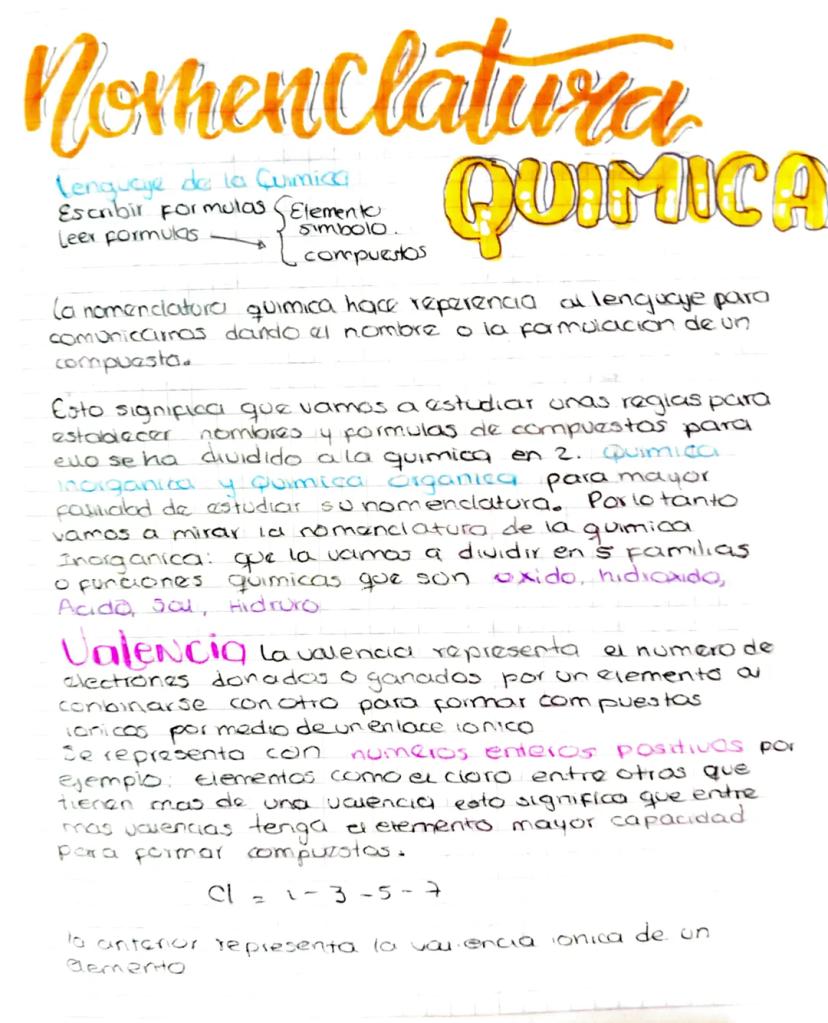 Nomenclatura
QUIMICA
lenguaje de la Quimica
Escribir formulas
leer formulas
Elemento
simbolo.
compuestos
la nomenclatura quimica hace referencia al lenguaje para
comunicarnos dando el nombre o la formulacion de un
compuesto.
Esto significa que vamos a estudiar unas reglas para
establecer nombres y formulas de compuestos para
ello se ha dividido a la quimica en 2. Quimica
inorganica y Quimica organica para mayor
facilidad de estudiar su nomenclatura. Por lo tanto
vamos a mirar la nomenclatura de la quimica
Inorganica: que la vamos a dividir en 5 familias
o funciones quimicas que son oxido, hidroxido,
Acido, Sal, Hidruro
Valencia la valencia representa el numero de
electrones donados o ganados por un elemento al
conbinarse con otro para formar compuestos
ionicos por medio de un enlace ionico
Se representa con numeros enteros positivos por
ejemplo: elementos como el cloro entre otros que
tienen mas de una valencia esto significa que entre
mas valencias tenga el elemento mayor capacidad
para formar compuestos.
Cl = 1 - 3 - 5 - 7
lo anterior representa la valencia ionica de un
elemento